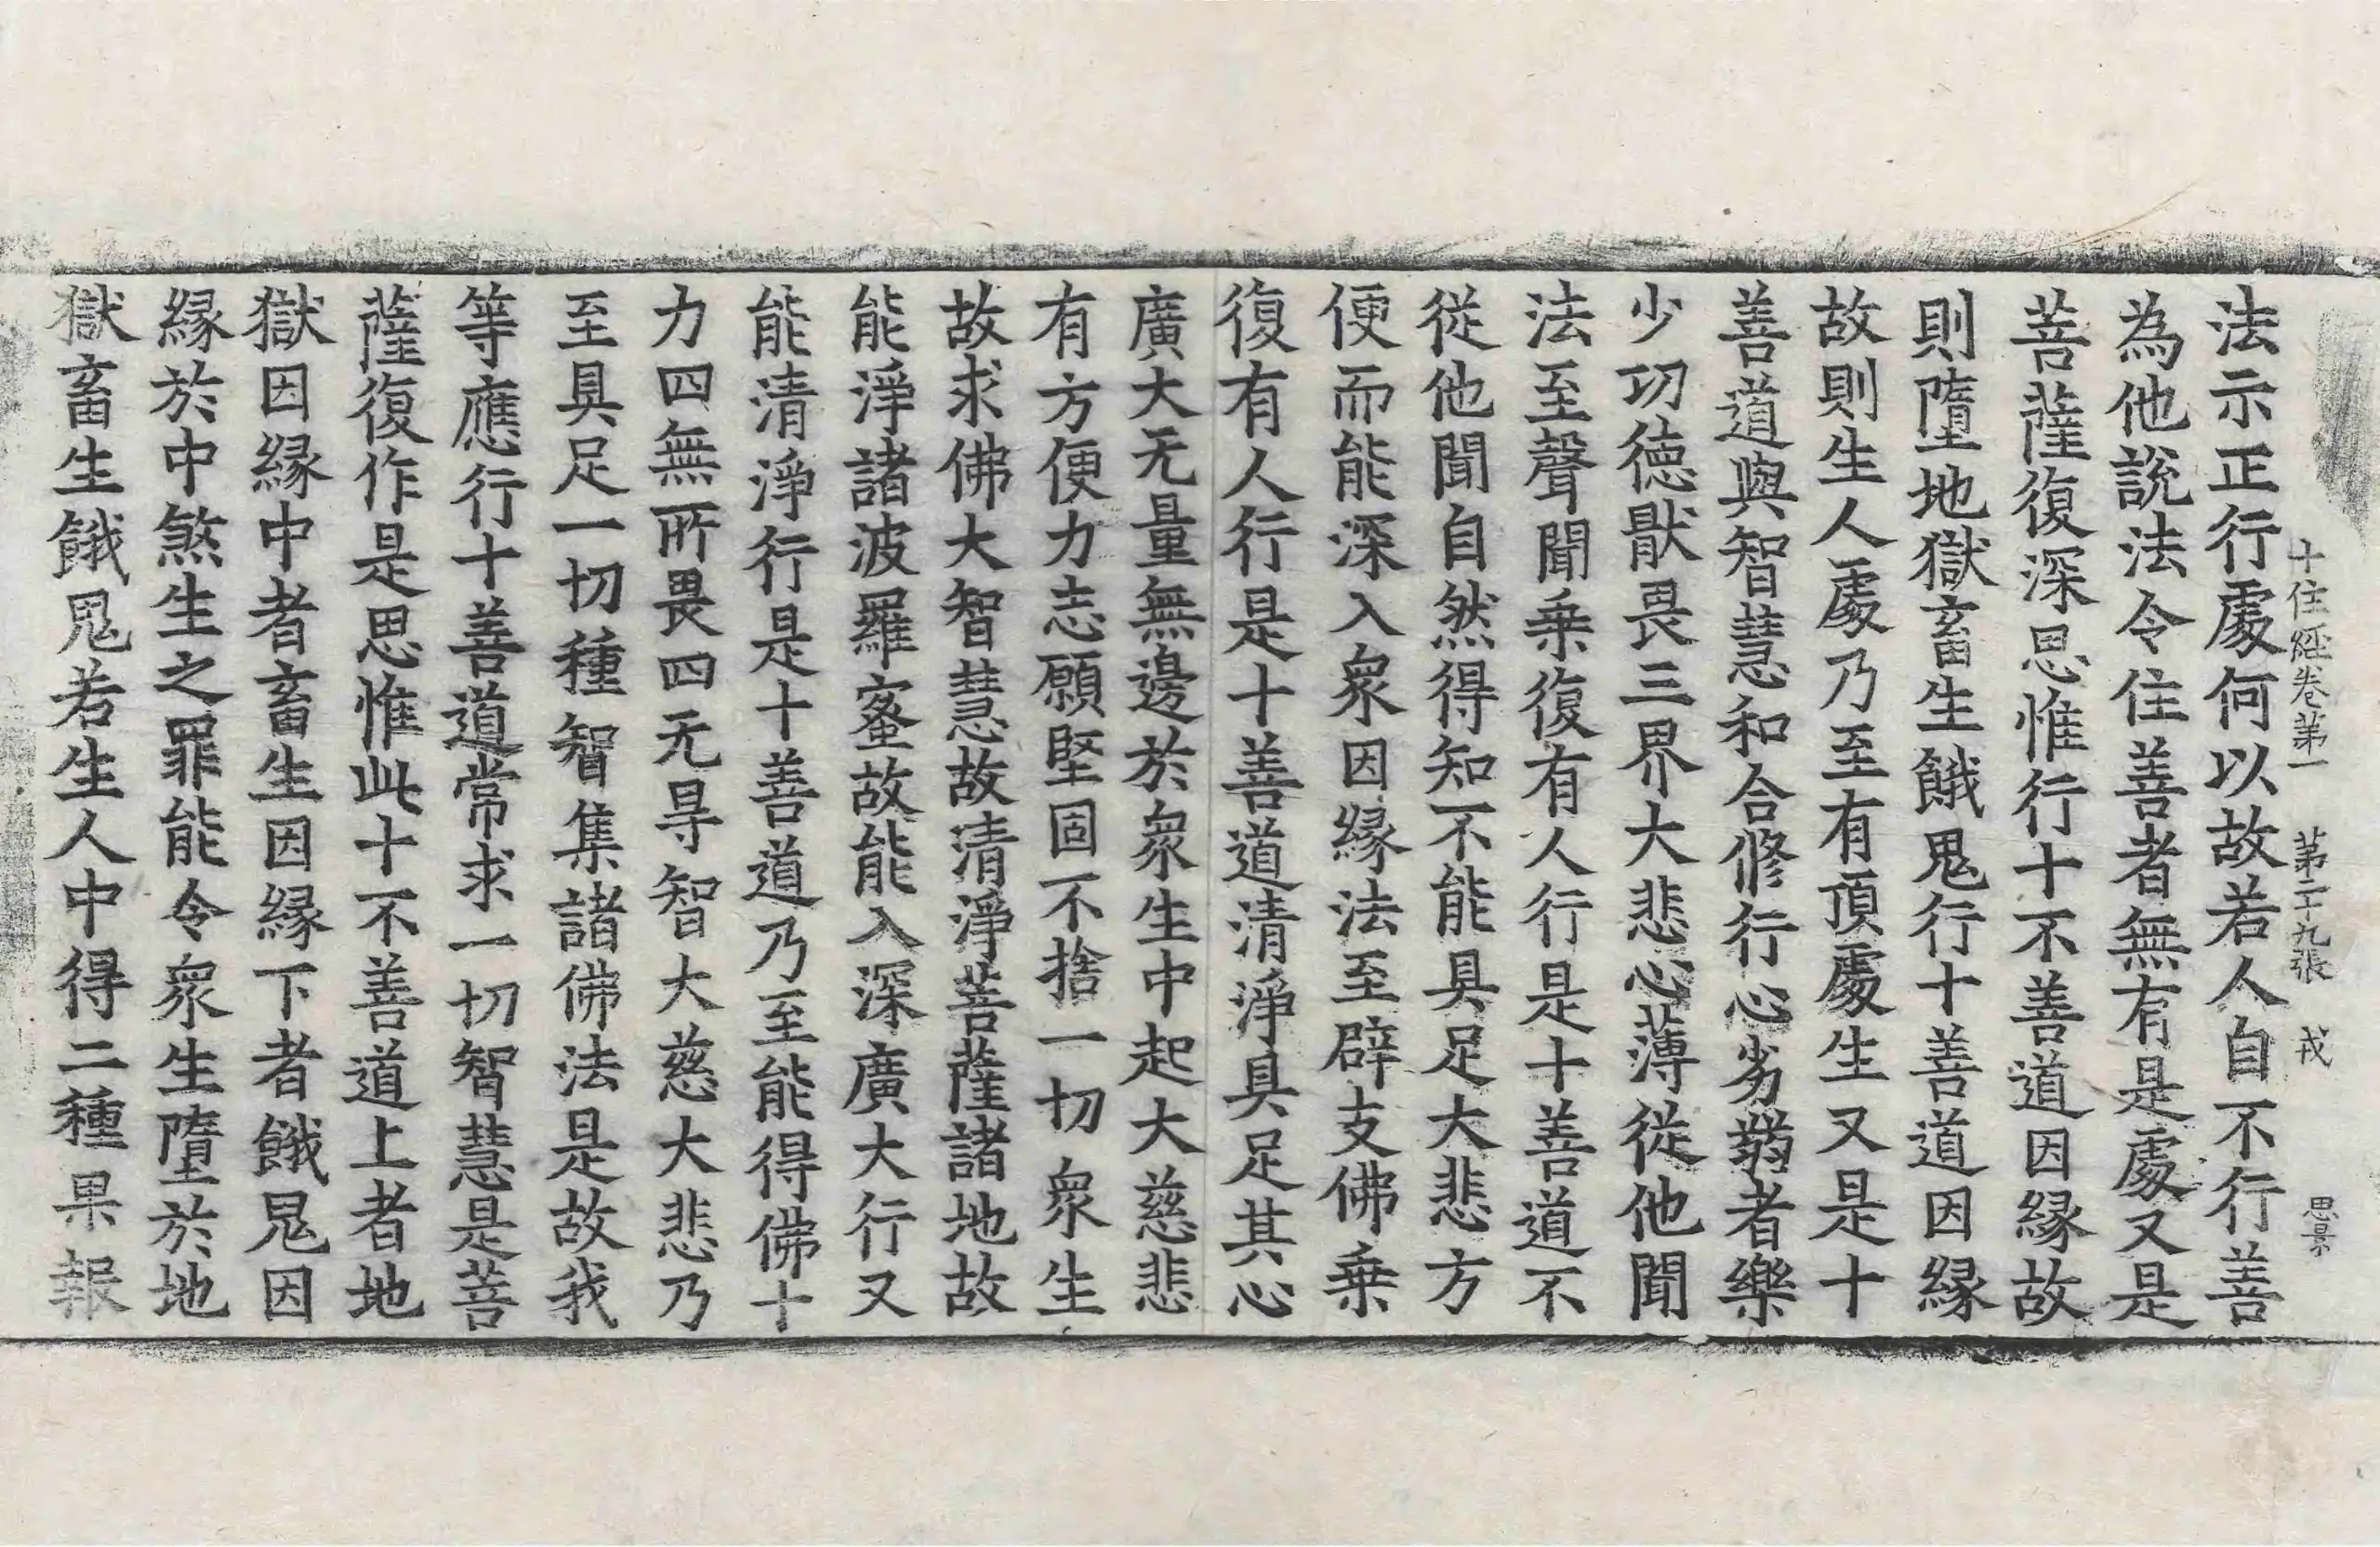 十住經卷第一　第二十九張　戎　思景
法示正行處何以故若人自不行善
為他說法令住善者無有是處又是
菩薩復深思惟行十不善道因縁故
則墮地獄畜生餓鬼行十善道因縁
故則生人處乃至有頂處生又是十
善道與智慧和合修行心劣弱者樂
少功德猒畏三界大悲心薄從他聞
法至聲聞乗復有人行是十善道不
從他聞自然得知不能具足大悲方
便而能深入衆因縁法至辟支佛乗
復有人行是十善道清淨具足其心
廣大无量無邊於衆生中起大慈悲
有方便力志願堅固不捨一切衆生
故求佛大智慧故清淨菩薩諸地故
能淨諸波羅蜜故能入深廣大行又
能清淨行是十善道乃至能得佛十
力四無所畏四无㝵智大慈大悲乃
至具足一切種智集諸佛法是故我
等應行十善道常求一切智慧是菩
薩復作是思惟此十不善道上者地
獄因縁中者畜生因縁下者餓鬼因
縁於中煞生之罪能令衆生墮於地
獄畜生餓鬼若生人中得二種果報